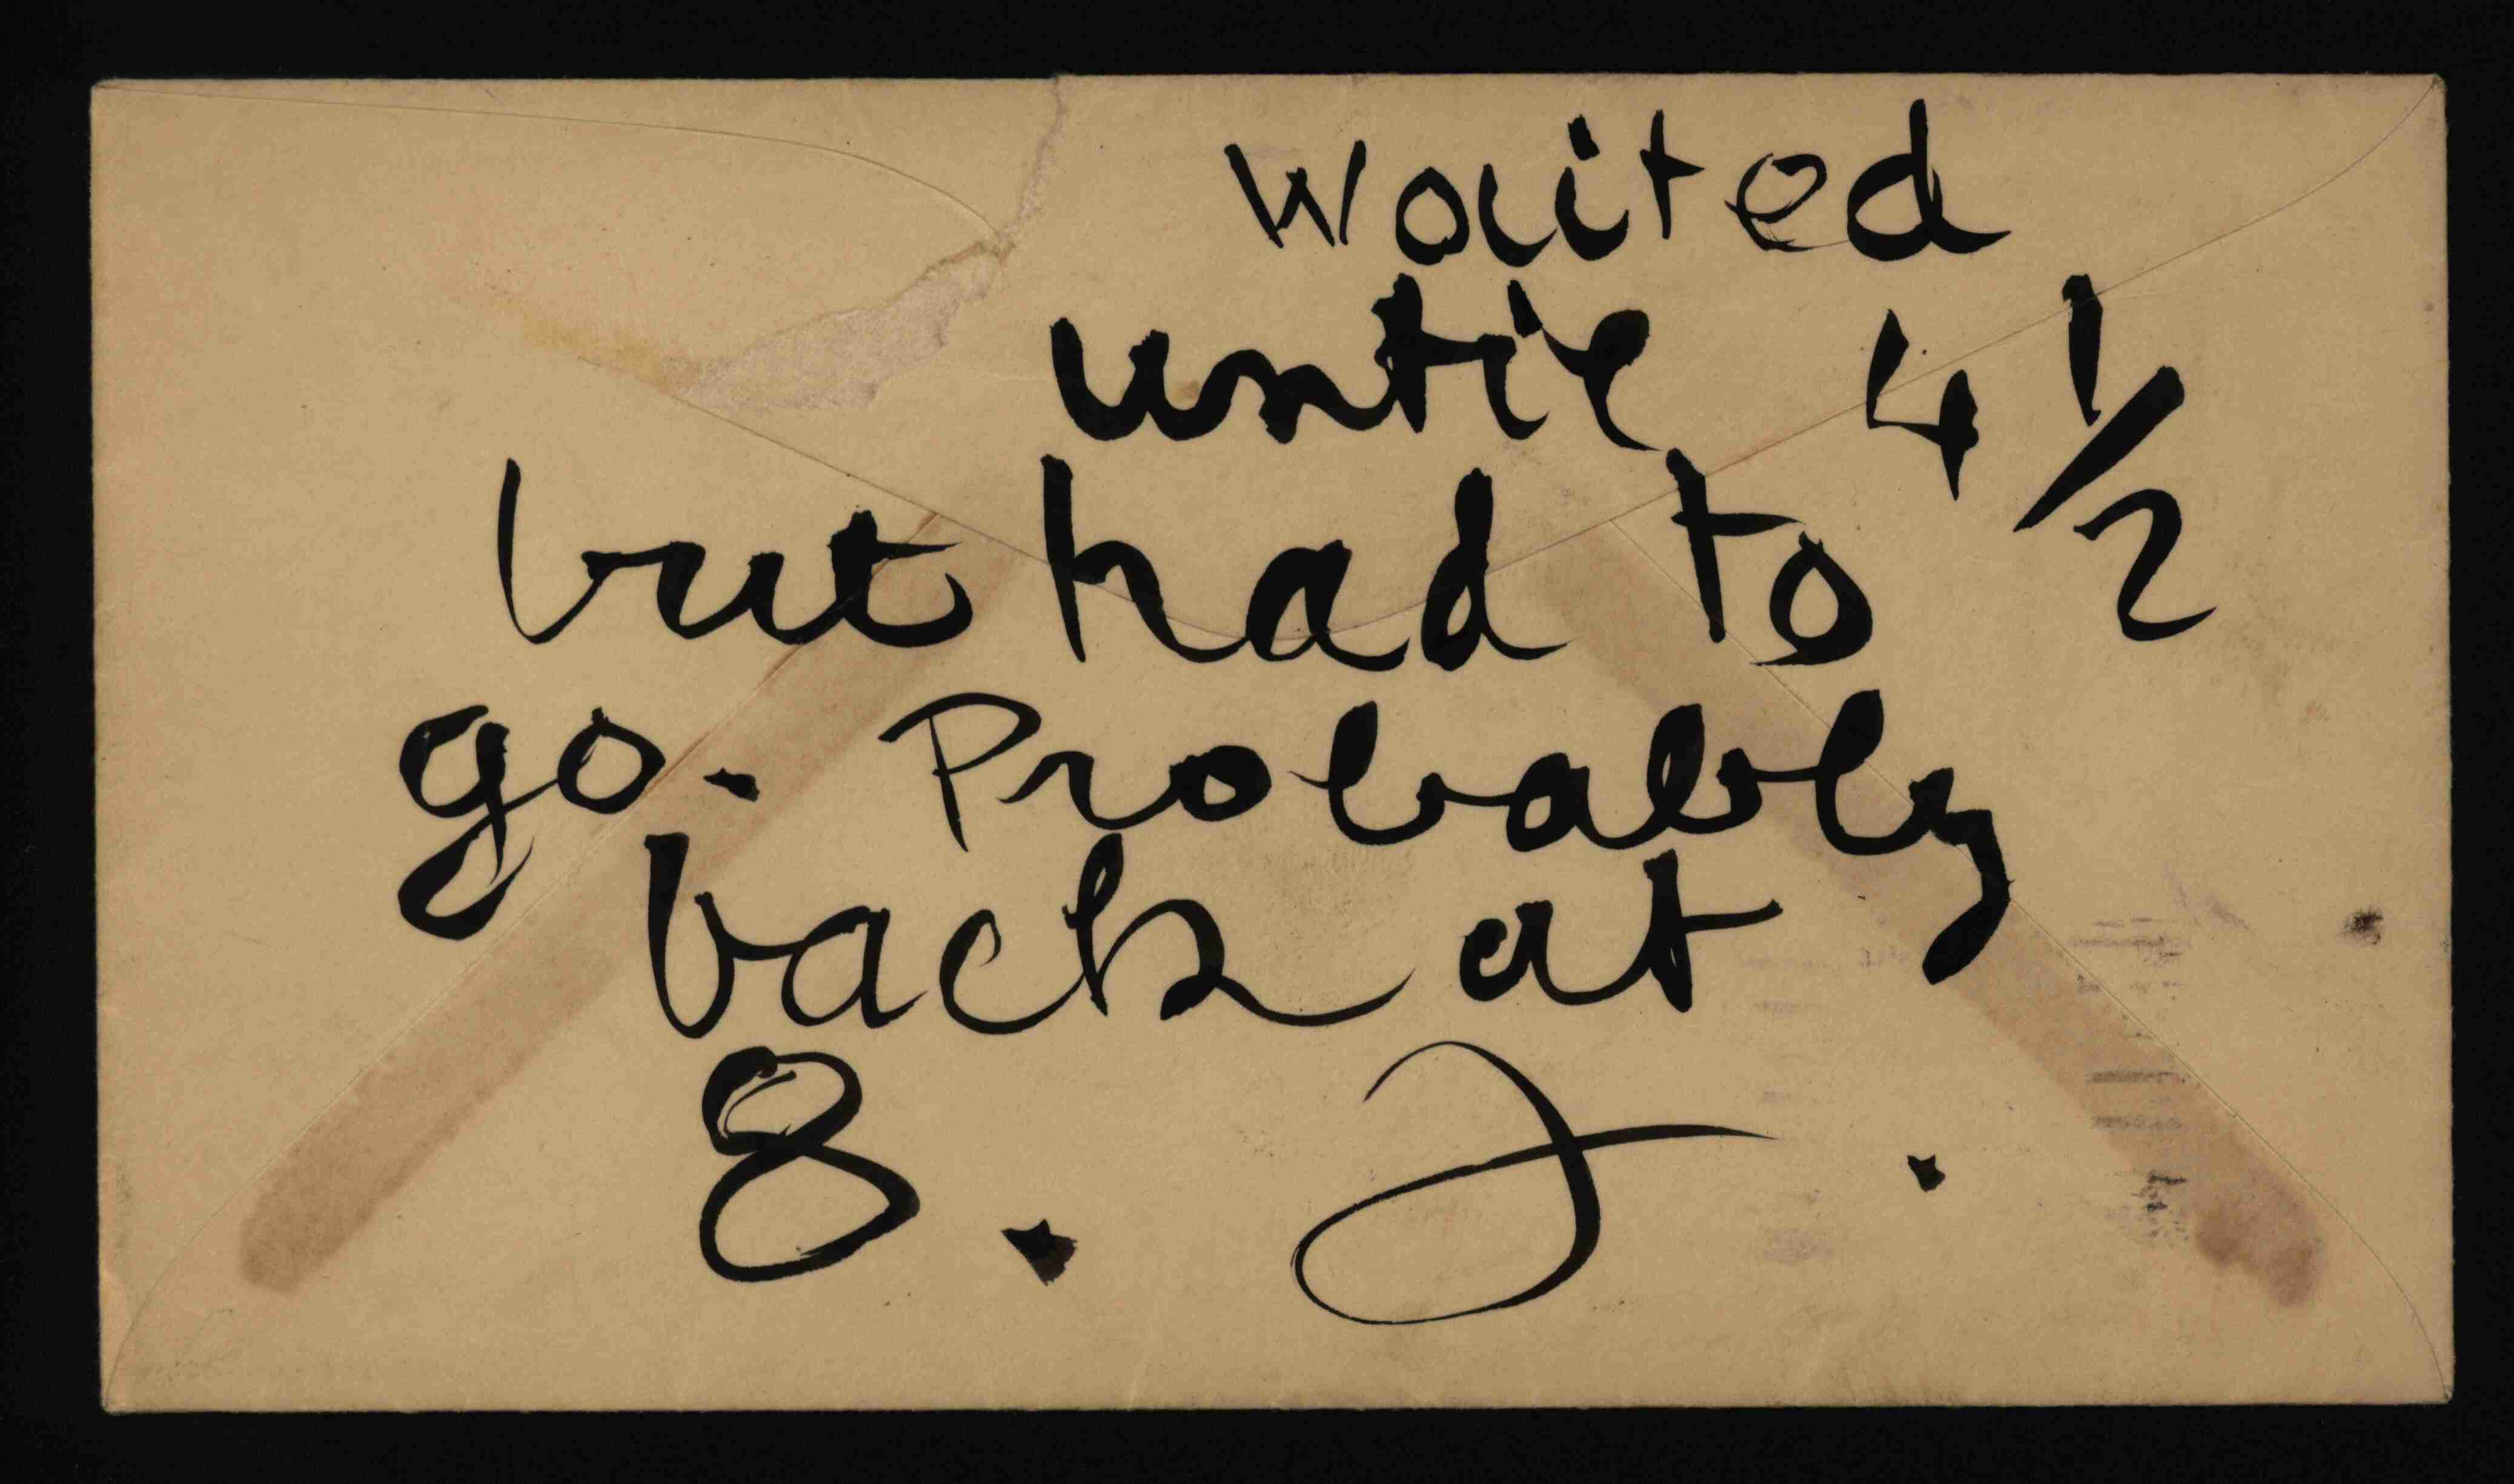 Waited
until 4 1/2
but had to
go. Probably
back at
8. J.